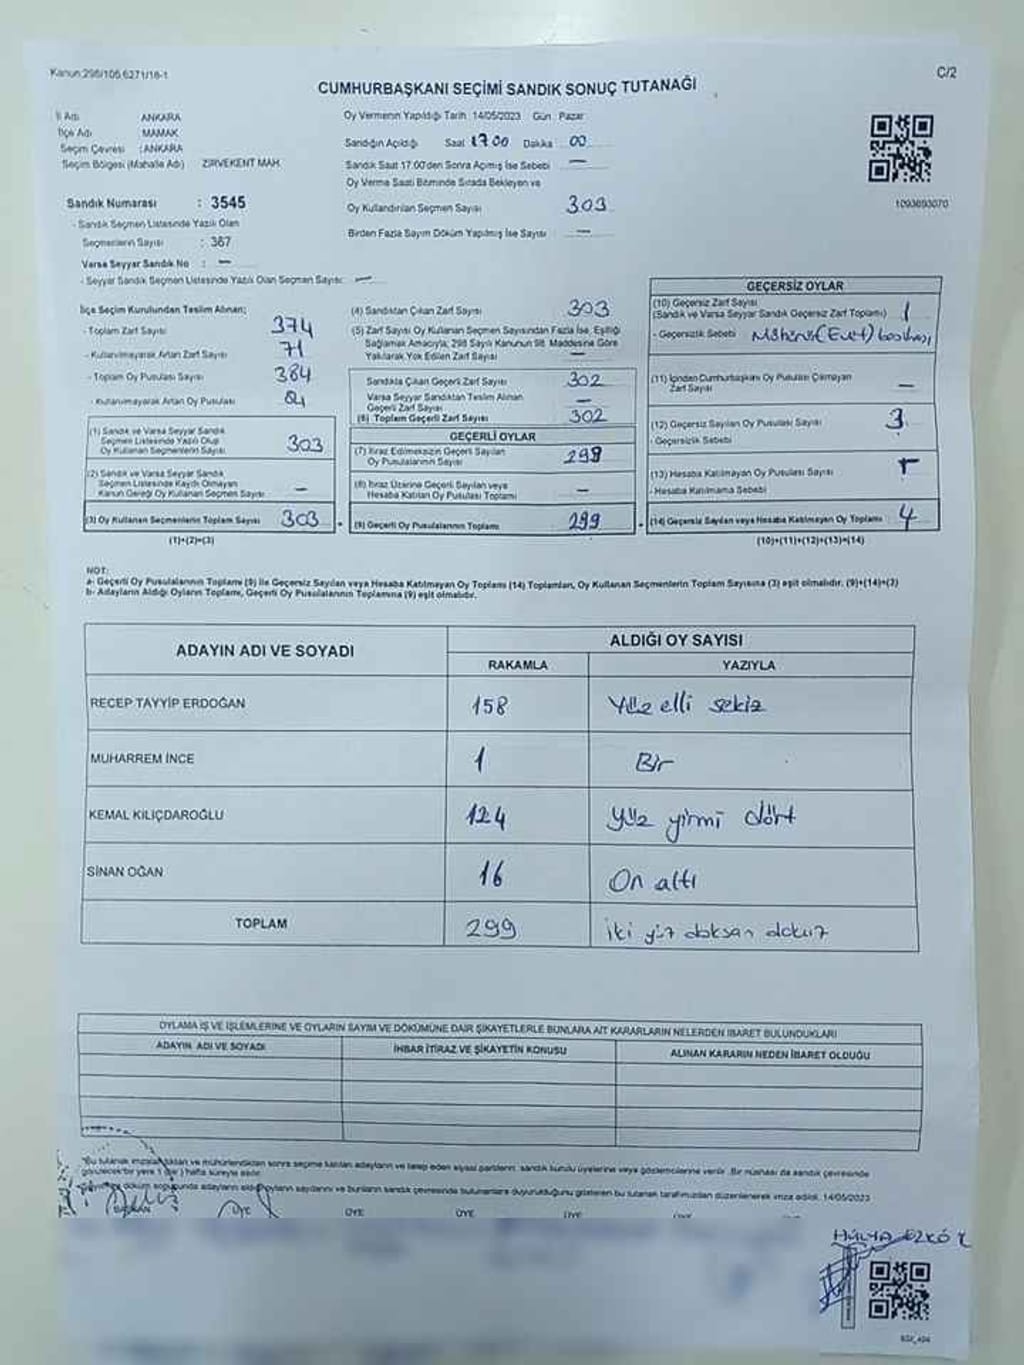 Kanun:298/105,6271/18-1
C/2
CUMHURBAŞKANI SEÇİMİ SANDIK SONUÇ TUTANAĞI
İl Adı ANKARA
İlçe Adı MAMAK
Seçim Çevresi : ANKARA
Seçim Bölgesi (Mahalle Adı) ZİRVEKENT MAH.
Sandık Numarası : 3545
- Sandık Seçmen Listesinde Yazılı Olan
Seçmenlerin Sayısı : 367
Varsa Seyyar Sandık No : —
- Seyyar Sandık Seçmen Listesinde Yazılı Olan Seçmen Sayısı: —
Oy Vermenin Yapıldığı Tarih : 14/05/2023 Gün : Pazar
Sandığın Açıldığı Saat 17 00 Dakika 00
Sandık Saat 17.00'den Sonra Açılmış İse Sebebi —
Oy Verme Saati Bitiminde Sırada Bekleyen ve
Oy Kullandırılan Seçmen Sayısı 303
Birden Fazla Sayım Döküm Yapılmış İse Sayısı —
1093693070
İlçe Seçim Kurulundan Teslim Alınan;
- Toplam Zarf Sayısı 374
- Kullanılmayarak Artan Zarf Sayısı 71
- Toplam Oy Pusulası Sayısı 384
- Kullanılmayarak Artan Oy Pusulası 81
(1) Sandık ve Varsa Seyyar Sandık
Seçmen Listesinde Yazılı Olup
Oy Kullanan Seçmenlerin Sayısı 303
(2) Sandık ve Varsa Seyyar Sandık
Seçmen Listesinde Kayıtlı Olmayan
Kanun Gereği Oy Kullanan Seçmen Sayısı —
(3) Oy Kullanan Seçmenlerin Toplam Sayısı 303
(1)+(2)=(3)
(4) Sandıktan Çıkan Zarf Sayısı 303
(5) Zarf Sayısı Oy Kullanan Seçmen Sayısından Fazla İse, Eşitliği
Sağlamak Amacıyla; 298 Sayılı Kanunun 98. Maddesine Göre
Yakılarak Yok Edilen Zarf Sayısı —
Sandıkta Çıkan Geçerli Zarf Sayısı 302
Varsa Seyyar Sandıktan Teslim Alınan
Geçerli Zarf Sayısı —
(6) Toplam Geçerli Zarf Sayısı 302
GEÇERLİ OYLAR
(7) İtiraz Edilmeksizin Geçerli Sayılan
Oy Pusulalarının Sayısı 299
(8) İtiraz Üzerine Geçerli Sayılan veya
Hesaba Katılan Oy Pusulası Toplamı —
(9) Geçerli Oy Pusulalarının Toplamı 299
GEÇERSİZ OYLAR
(10) Geçersiz Zarf Sayısı
(Sandık ve Varsa Seyyar Sandık Geçersiz Zarf Toplamı) 1
- Geçersizlik Sebebi Mühürü (Evet) basılmış
(11) İçinden Cumhurbaşkanı Oy Pusulası Çıkmayan
Zarf Sayısı —
(12) Geçersiz Sayılan Oy Pusulası Sayısı 3
- Geçersizlik Sebebi
(13) Hesaba Katılmayan Oy Pusulası Sayısı
- Hesaba Katılmama Sebebi
(14) Geçersiz Sayılan veya Hesaba Katılmayan Oy Toplamı 4
(10)+(11)+(12)+(13)=(14)
NOT:
a- Geçerli Oy Pusulalarının Toplamı (9) ile Geçersiz Sayılan veya Hesaba Katılmayan Oy Toplamı (14) Toplamları, Oy Kullanan Seçmenlerin Toplam Sayısına (3) eşit olmalıdır. (9)+(14)=(3)
b- Adayların Aldığı Oyların Toplamı, Geçerli Oy Pusulalarının Toplamına (9) eşit olmalıdır.
ADAYIN ADI VE SOYADI
ALDIĞI OY SAYISI
RAKAMLA YAZIYLA
RECEP TAYYİP ERDOĞAN 158 Yüz elli sekiz
MUHARREM İNCE 1 Bir
KEMAL KILIÇDAROĞLU 124 Yüz yirmi dört
SİNAN OĞAN 16 On altı
TOPLAM 299 iki yüz doksan dokuz
OYLAMA İŞ VE İŞLEMLERİNE VE OYLARIN SAYIM VE DÖKÜMÜNE DAİR ŞİKAYETLERLE BUNLARA AİT KARARLARIN NELERDEN İBARET BULUNDUKLARI
ADAYIN ADI VE SOYADI İHBAR İTİRAZ VE ŞİKAYETİN KONUSU ALINAN KARARIN NEDEN İBARET OLDUĞU
Bu tutanak imzalandıktan ve mühürlendikten sonra seçime katılan adayların ve talep eden siyasi partilerin sandık kurulu üyelerine veya gözlemcilerine verilir. Bir nüshası da sandık çevresinde
görülecek bir yere 1 (bir) hafta süreyle asılır.
döküm sonucunda adayların aldığı oyların sayılarını ve bunların sandık çevresinde bulunanlara duyurulduğunu gösteren bu tutanak tarafımızdan düzenlenerek imza edildi. 14/05/2023
BAŞKAN ÜYE ÜYE ÜYE ÜYE
HÜLYA